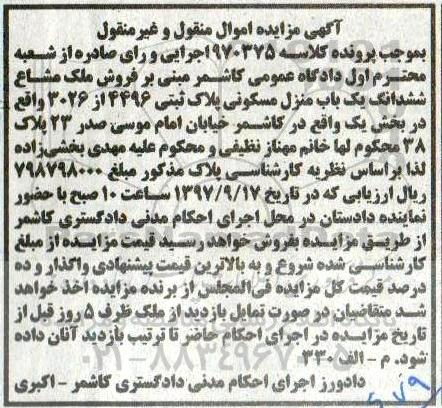 آگهی مزایده اموال منقول و غیر منقول
بموجب پرونده کلاسه ۹۷۰۳۷۵ اجرایی و رای صادره از شعبه
محترم اول دادگاه عمومی کاشمر مبنی بر فروش ملک مشاع
ششدانگ یک باب منزل مسکونی پلاک ثبتی ۴۴۹۶ از ۳۰۲۶ واقع
در بخش یک واقع در کاشمر خیابان امام موسی صدر ۲۳ پلاک
۳۸ محکوم لها خانم مهناز نظیفی و محکوم علیه مهدی بخشی زاده
لذا بر اساس نظریه کارشناسی پلاک مذکور مبلغ ۷۹۸۷۹۸۰۰۰
ریال ارزیابی که در تاریخ ۱۳۹۷/۹/۱۷ ساعت ۱۰ صبح با حضور
نماینده دادستان در محل اجرای احکام مدنی دادگستری کاشمر
از طریق مزایده بفروش خواهد رسید قیمت مزایده از مبلغ
کارشناسی شده شروع و به بالاترین قیمت پیشنهادی واگذار و ده
درصد قیمت کل مزایده فی المجلس از برنده مزایده اخذ خواهد
شد متقاضیان در صورت تمایل بازدید از ملک ظرف ۵ روز قبل از
تاریخ مزایده در اجرای احکام حاضر تا ترتیب بازدید آنان داده
شود. م - الف ۳۳۰
دادورز اجرای احکام مدنی دادگستری کاشمر - اکبری
۰۲۱-۸۸۳۴۹۶۷۰